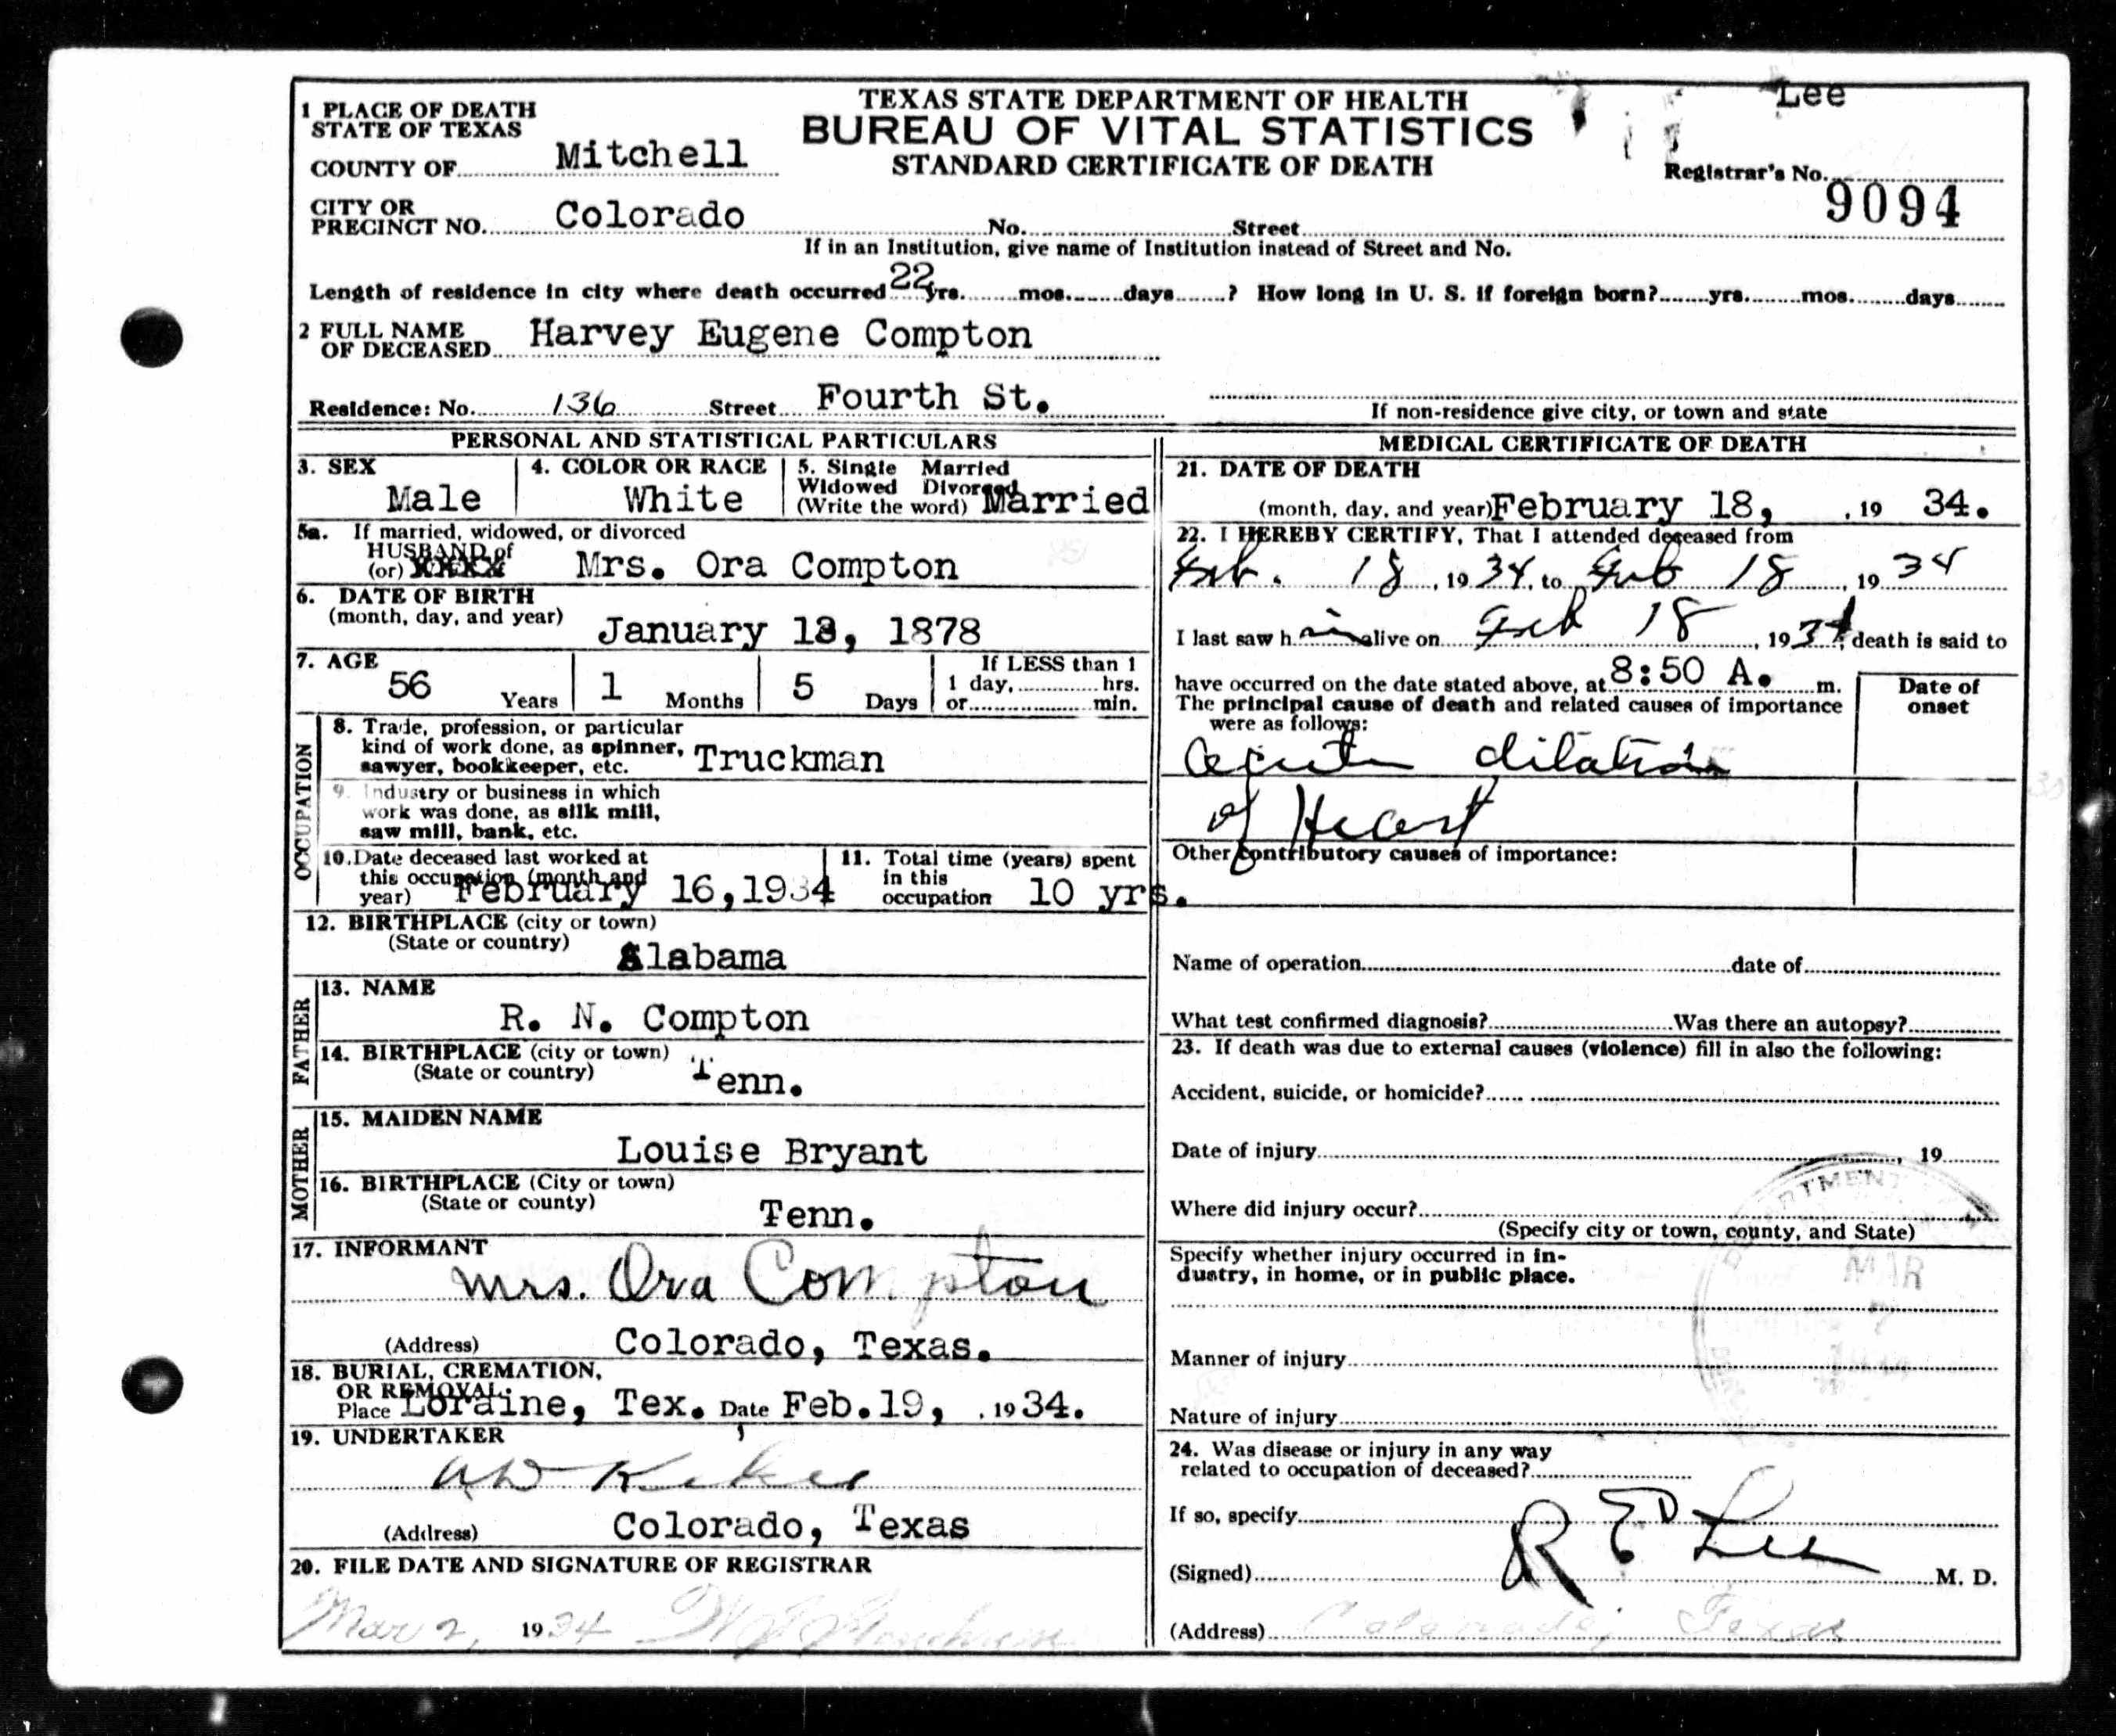 Lee
1 PLACE OF DEATH
STATE OF TEXAS
COUNTY OF Mitchell
TEXAS STATE DEPARTMENT OF HEALTH
BUREAU OF VITAL STATISTICS
STANDARD CERTIFICATE OF DEATH
Registrar's No. 9094
CITY OR
PRECINCT NO. Colorado No. Street
If in an Institution, give name of Institution instead of Street and No.
Length of residence in city where death occurred 22 yrs. mos. days ? How long in U. S. if foreign born? yrs. mos. days
2 FULL NAME
OF DECEASED Harvey Eugene Compton
Residence: No. 136 Street Fourth St.
If non-residence give city, or town and state
PERSONAL AND STATISTICAL PARTICULARS
3. SEX
Male
4. COLOR OR RACE
White
5. Single Married
Widowed Divorced
(Write the word) Married
5a. If married, widowed, or divorced
HUSBAND of
(or) XXXX Mrs. Ora Compton
6. DATE OF BIRTH
(month, day, and year) January 13, 1878
7. AGE
56 Years 1 Months 5 Days
If LESS than 1
1 day, hrs.
or min.
OCCUPATION
8. Trade, profession, or particular
kind of work done, as spinner,
sawyer, bookkeeper, etc. Truckman
9. Industry or business in which
work was done, as silk mill,
saw mill, bank, etc.
10. Date deceased last worked at
this occupation (month and
year) February 16, 1934
11. Total time (years) spent
in this
occupation 10 yrs.
12. BIRTHPLACE (city or town)
(State or country) Alabama
FATHER
13. NAME
R. N. Compton
14. BIRTHPLACE (city or town)
(State or country) Tenn.
MOTHER
15. MAIDEN NAME
Louise Bryant
16. BIRTHPLACE (City or town)
(State or county) Tenn.
17. INFORMANT
Mrs. Ora Compton
(Address) Colorado, Texas.
18. BURIAL, CREMATION,
OR REMOVAL
Place Loraine, Tex. Date Feb.19, , 1934.
19. UNDERTAKER
(Address) Colorado, Texas
20. FILE DATE AND SIGNATURE OF REGISTRAR
Mar 2, 1934
MEDICAL CERTIFICATE OF DEATH
21. DATE OF DEATH
(month, day, and year) February 18, , 19 34.
22. I HEREBY CERTIFY, That I attended deceased from
Feb. 18, 1934, to Feb 18, 1934
I last saw him alive on Feb 18, 1934, death is said to
have occurred on the date stated above, at 8:50 A. m.
The principal cause of death and related causes of importance
were as follows:
Date of
onset
Acute dilation
of Heart
Other contributory causes of importance:
Name of operation date of
What test confirmed diagnosis? Was there an autopsy?
23. If death was due to external causes (violence) fill in also the following:
Accident, suicide, or homicide?
Date of injury , 19
Where did injury occur?
(Specify city or town, county, and State)
Specify whether injury occurred in in-
dustry, in home, or in public place.
MAR
Manner of injury
Nature of injury
24. Was disease or injury in any way
related to occupation of deceased?
If so, specify
(Signed) R E Lee M. D.
(Address) Colorado, Texas